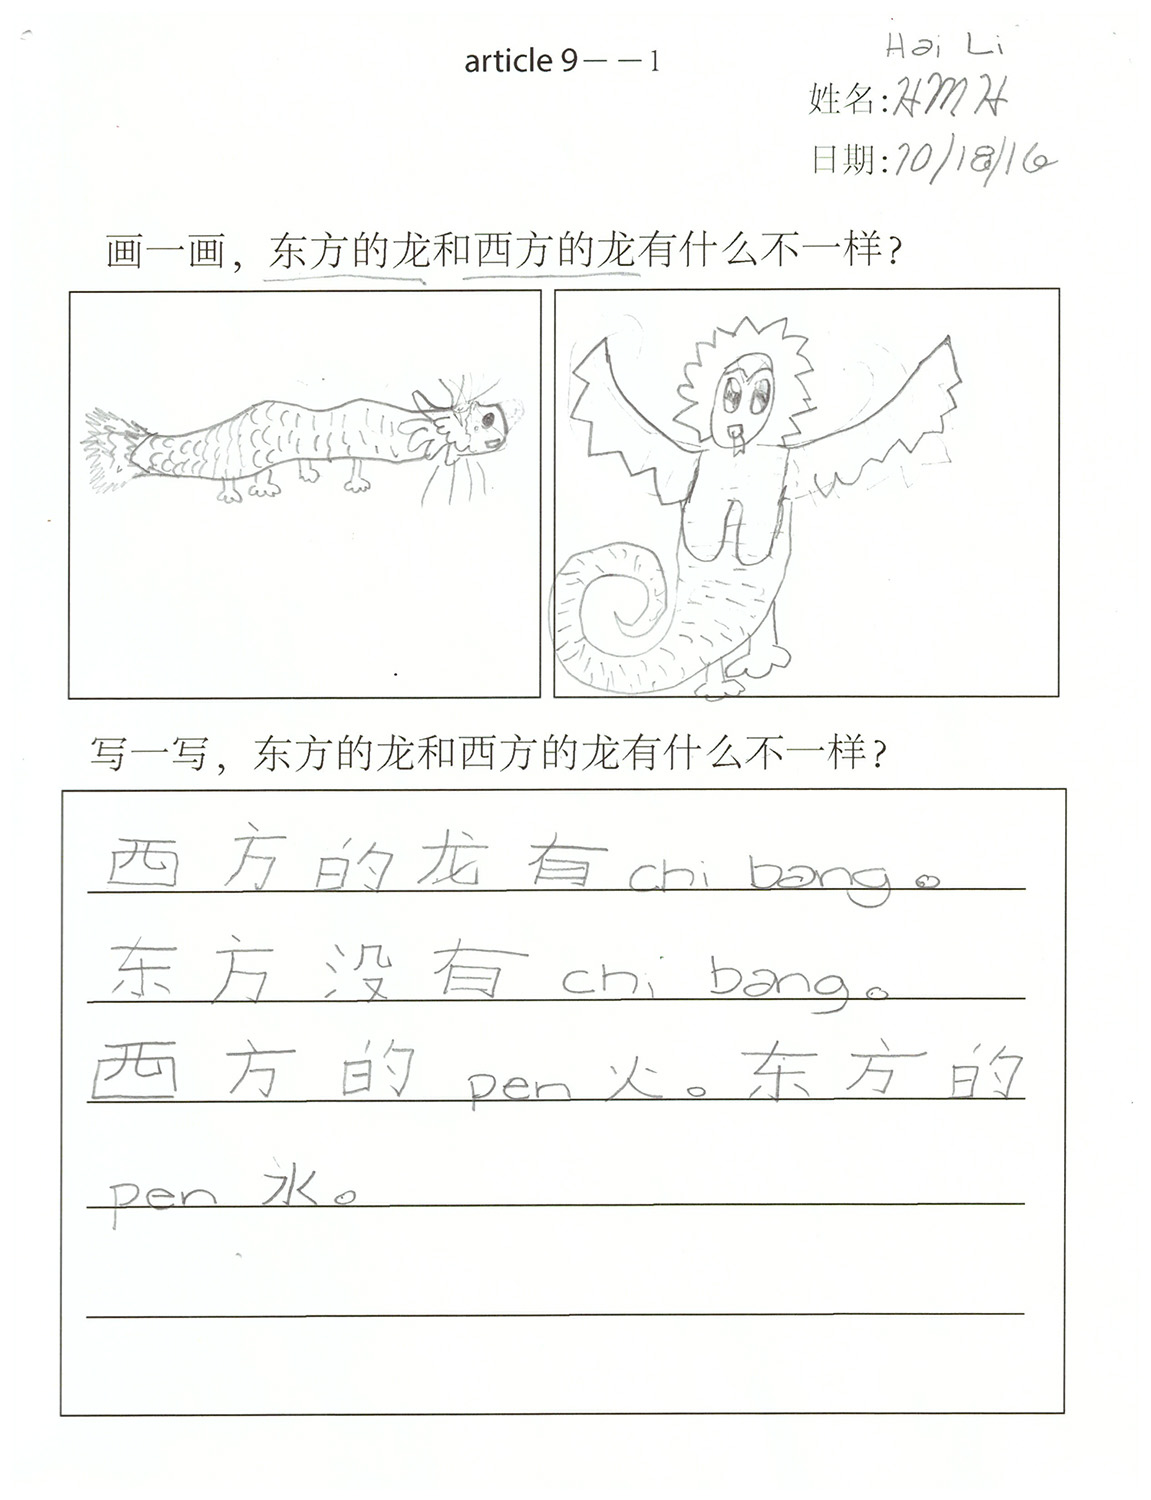 article 9——1
Hai Li
姓名:HMH
日期:10/18/16
画一画，东方的龙和西方的龙有什么不一样?
写一写，东方的龙和西方的龙有什么不一样?
西方的龙有 chi bang。
东方没有 chi bang。
西方的 pen 火。东方的
pen 水。